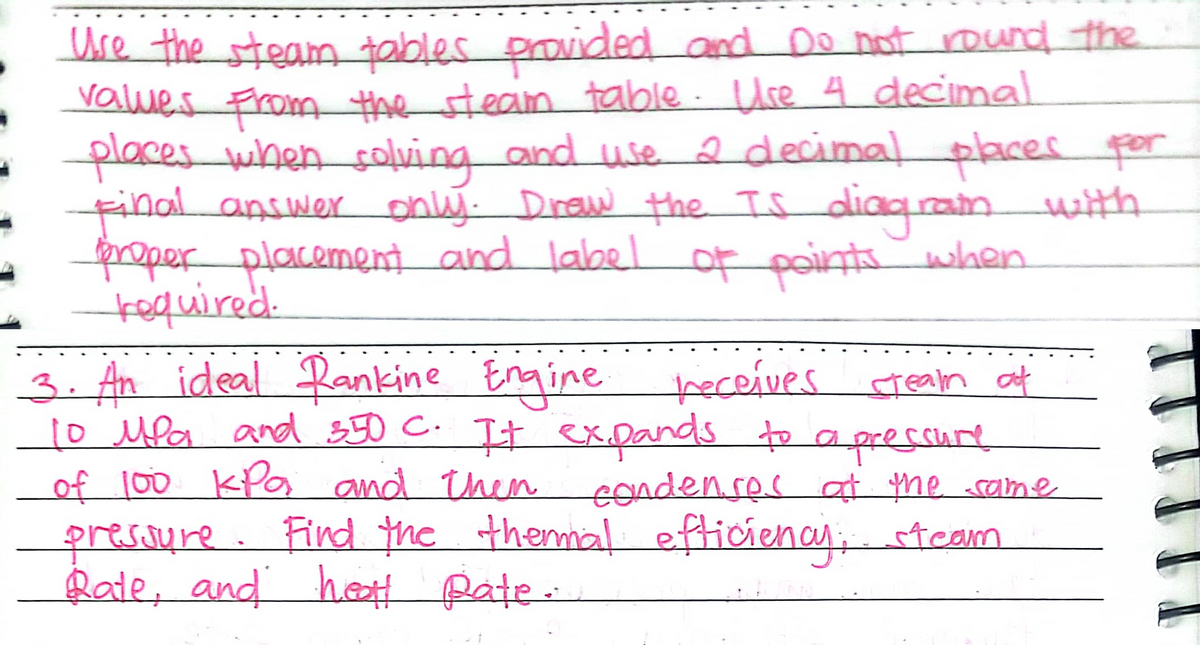 Use the steam tables provided and Do not round the
values from the steam table. Use 4 decimal
places when solving and use 2 decimal places for
final answer only. Draw the TS diagram with
proper placement and label of points when
required.
3. An ideal Rankine Engine receives steam at
10 MPa and 350 C. It expands to a pressure
of 100 kPa and then condenses at the same
pressure. Find the thermal efficiency, steam
Rate, and heat Rate.